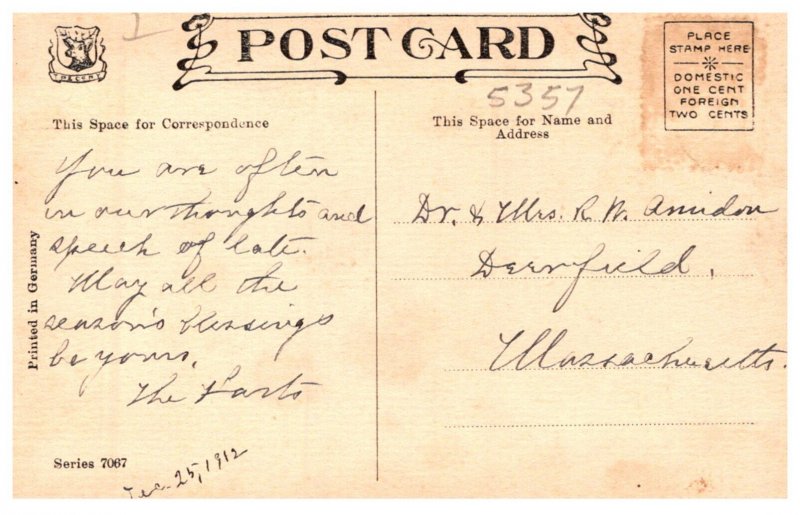 POST CARD
PLACE
STAMP HERE
DOMESTIC
ONE CENT
FOREIGN
TWO CENTS
5357
This Space for Correspondence
This Space for Name and
Address
You are often
in our thoughts and
speech of late.
May all the
season's blessings
be yours,
The
Dr. & Mrs. R. W. Amidon
Deerfield,
Massachusetts.
Printed in Germany
Series 7067
Dec. 25, 1912